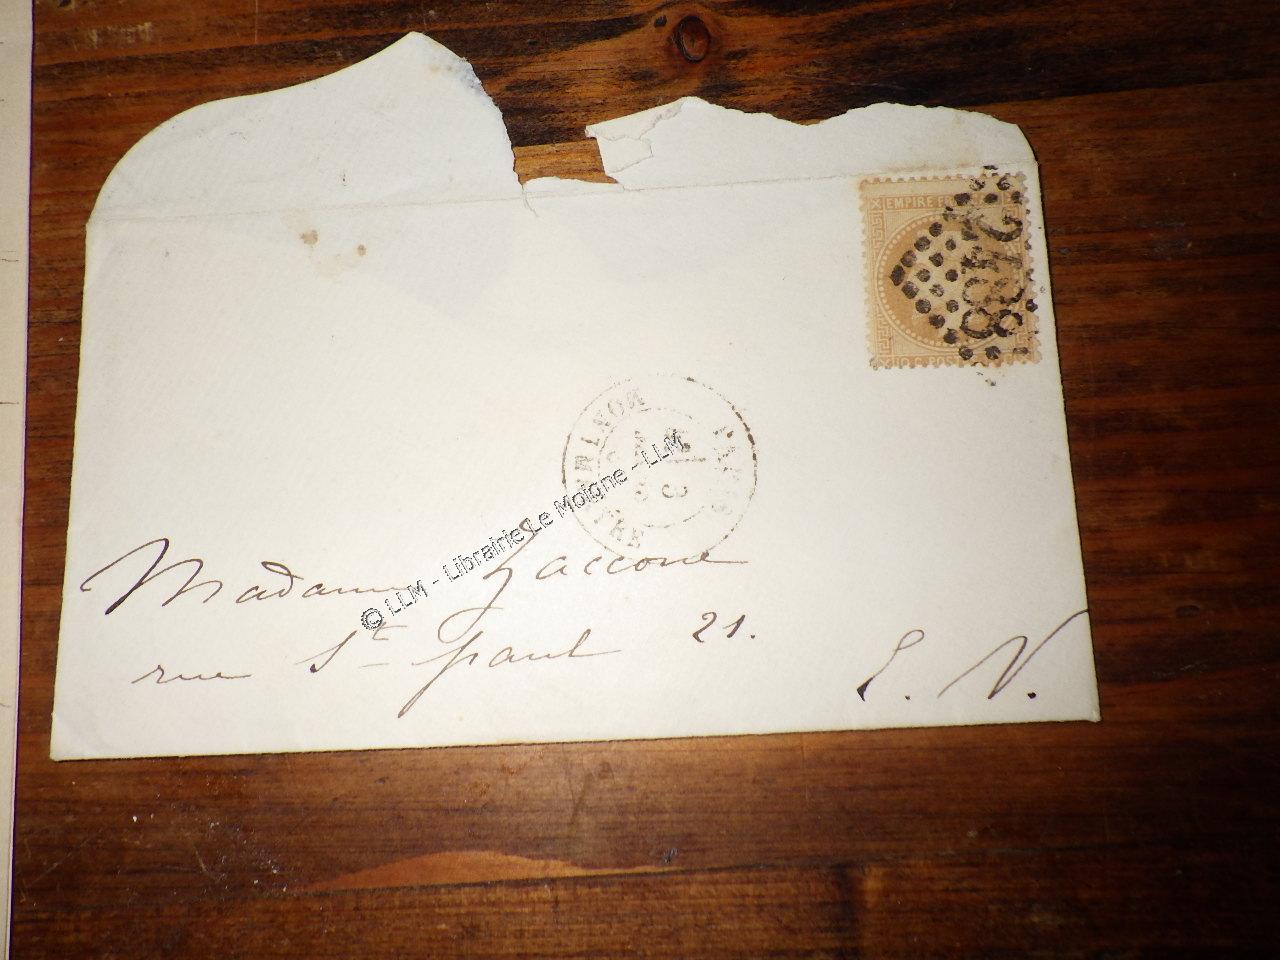 EMPIRE FR
2488
10 C. POST
PARIS
MONTMARTRE
© LLM - Librairie Le Moigne - LLM
Madame Zaccone
rue St paul 21.
E. V.